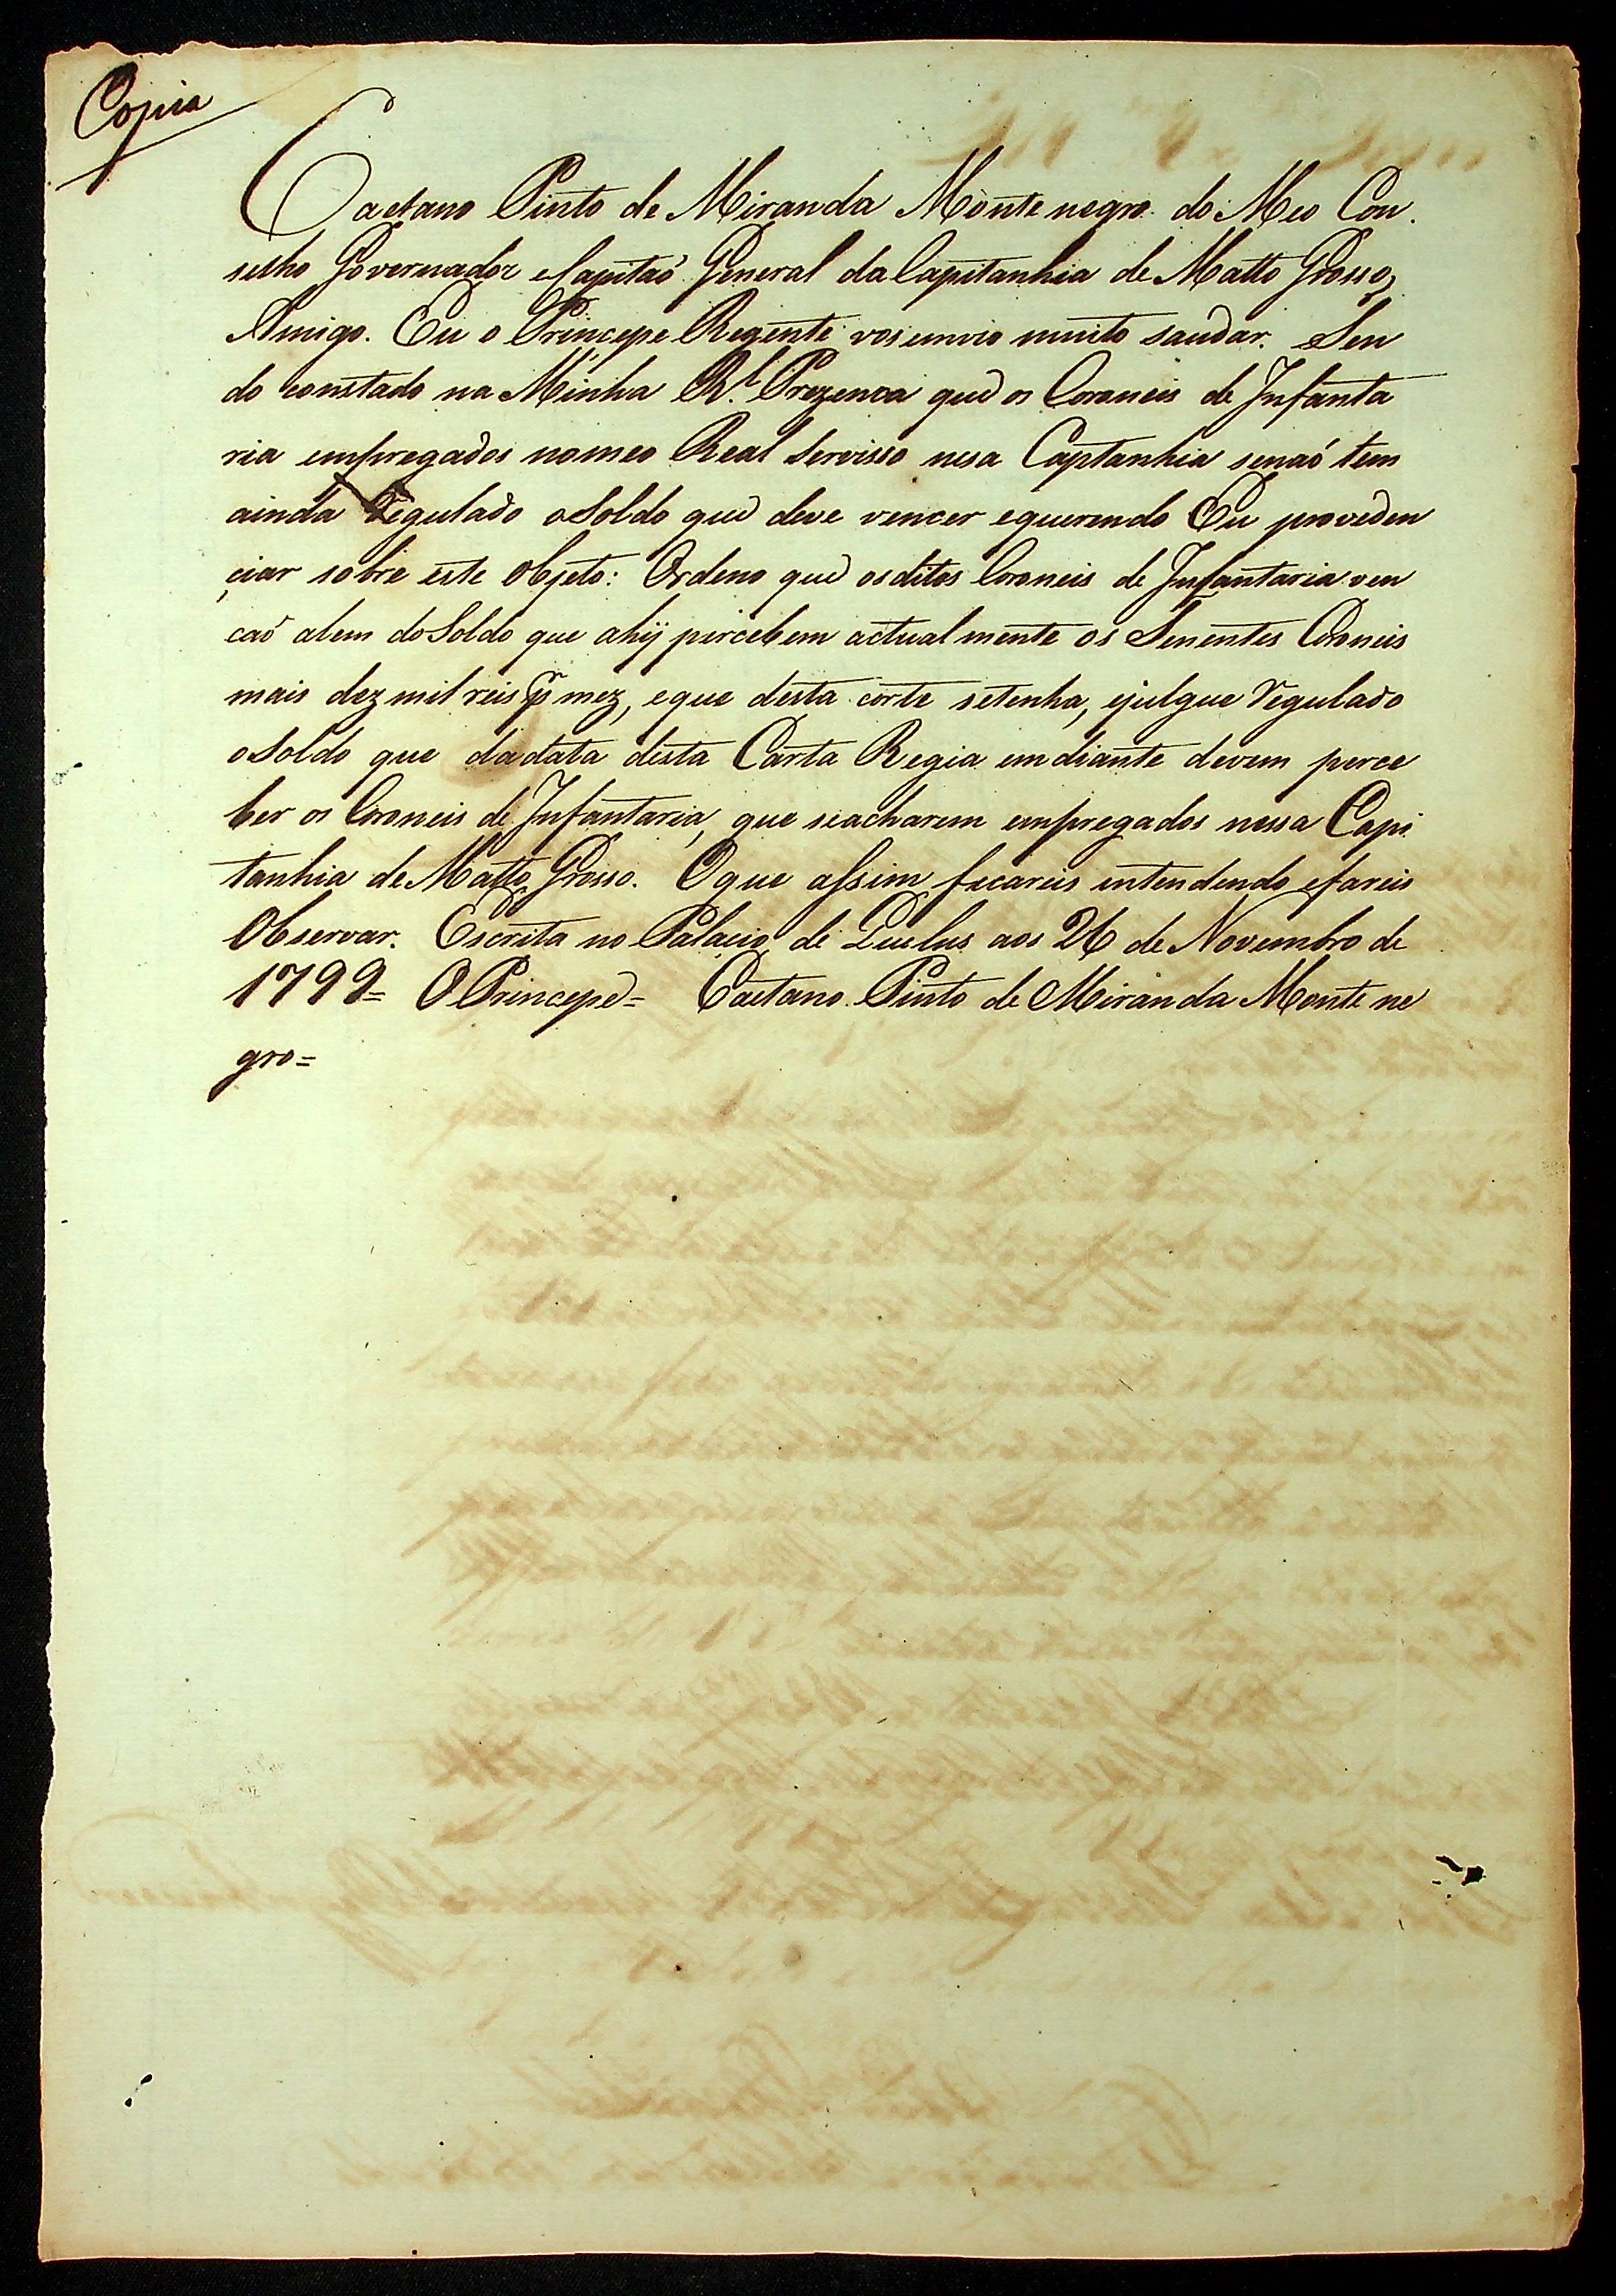 Copia
Caetano Pinto de Miranda Monte negro do Meo Con.
selho Governador eCapitaõ General daCapitanhia de Matto Grosso,
Amigo. Eu o Princepe Regente vos envio muito saudar. Sen
do constado na Minha R.l Prezenca que os Coroneis de Infanta
ria empregados nomeo Real Servisso nesa Captanhia senaõ tem
ainda Regulado oSoldo que deve vencer equerendo Eu proveden
ciar sobre este Objeto: Ordeno que osditos Coroneis de Infantaria ven
caõ alem doSoldo que ahij percebem actualmente os Tenentes Coroneis
mais dez mil reis p mez, eque desta corte setenha, ejulgue Regulado
oSoldo que dadata desta Carta Regia em diante devem perce
ber os Coroneis de Infantaria, que seacharem empregados nessa Capi
tanhia de Matto Grosso. Oque assim ficareis entendendo efareis
Observar. Escrita no Palacio de Quelus aos 26 de Novembro de
1799= O Princepe= Caetano Pinto de Miranda Monte ne
gro=